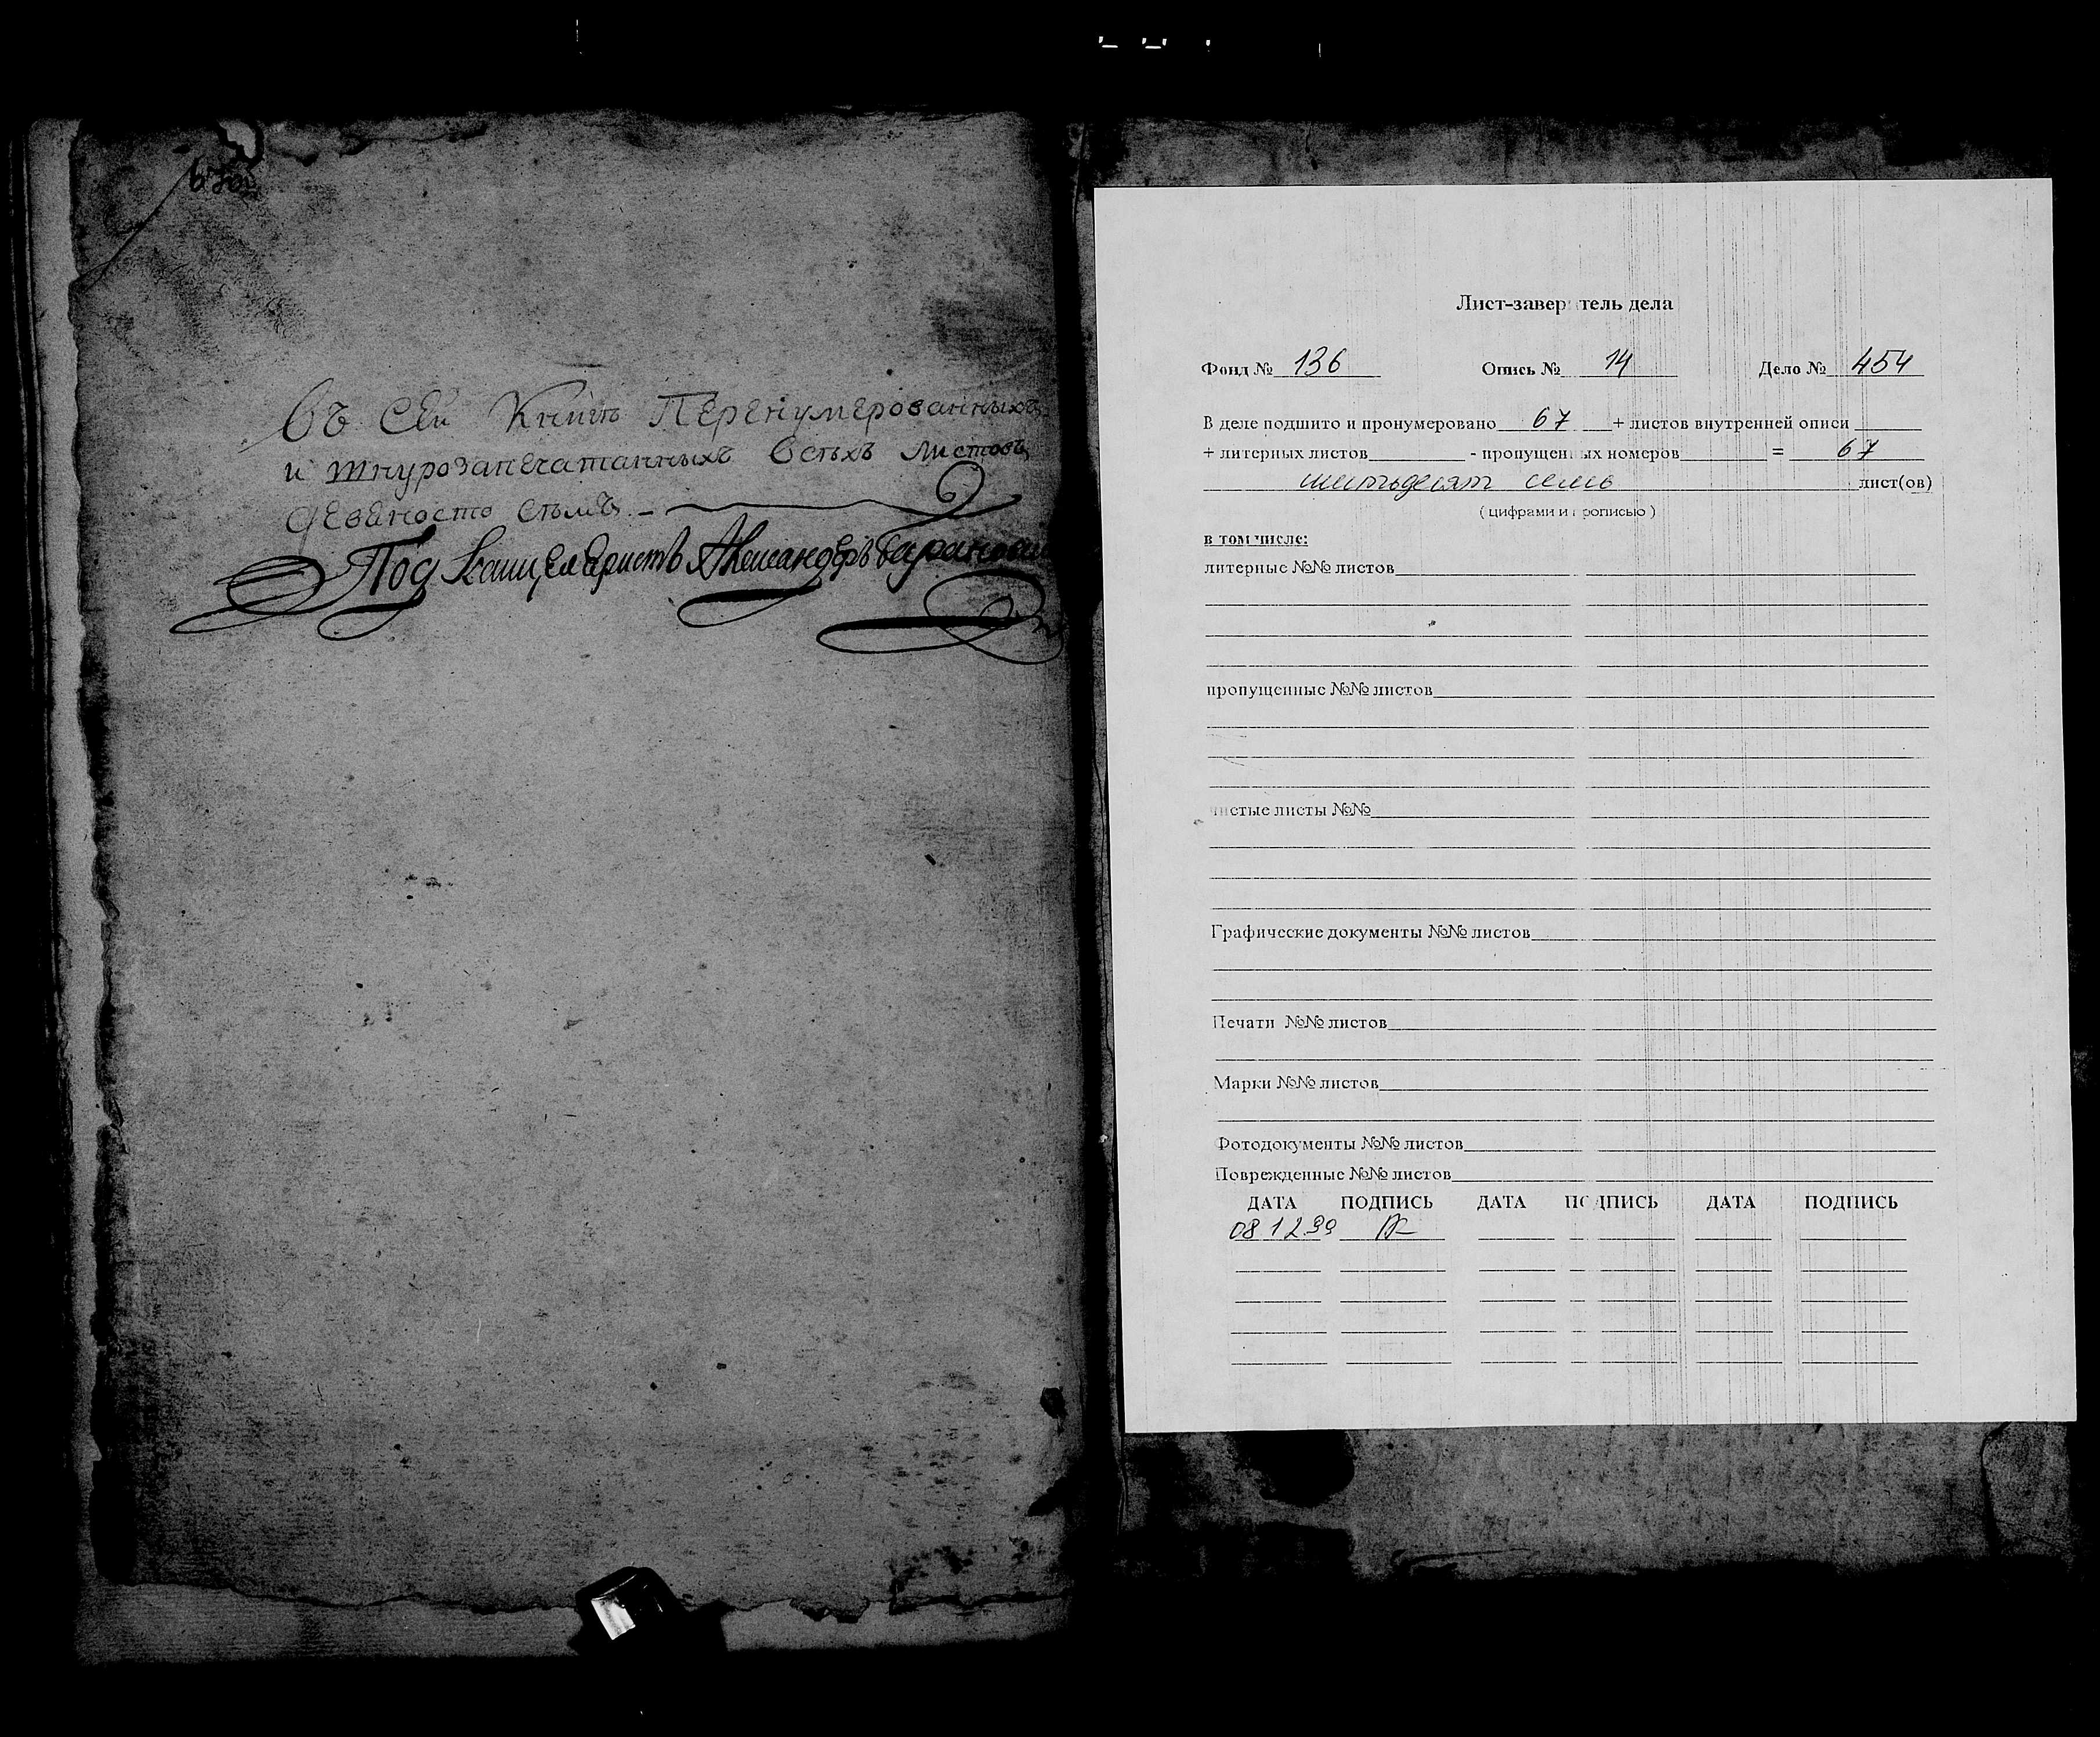 67об
Въ сей Книгѣ Перенумерованныхъ
и шнурозапечатанныхъ всѣхъ листовъ
девяносто сѣмъ. –
Под Канцеляристъ Александръ Баранович
Лист-завер тель дела
Фонд № 136 Опись № 14 Дело № 454
В деле подшито и пронумеровано 67 + листов внутренней описи
+ литерных листов - пропущен ых номеров = 67
шестьдесят семь лист(ов)
( цифрами и прописью )
в том числе:
литерные №№ листов
пропущенные №№ листов
чистые листы №№
Графические документы №№ листов
Печати №№ листов
Марки №№ листов
Фотодокументы №№ листов
Поврежденные №№ листов
ДАТА ПОДПИСЬ ДАТА ПОДПИСЬ ДАТА ПОДПИСЬ
08.12.99